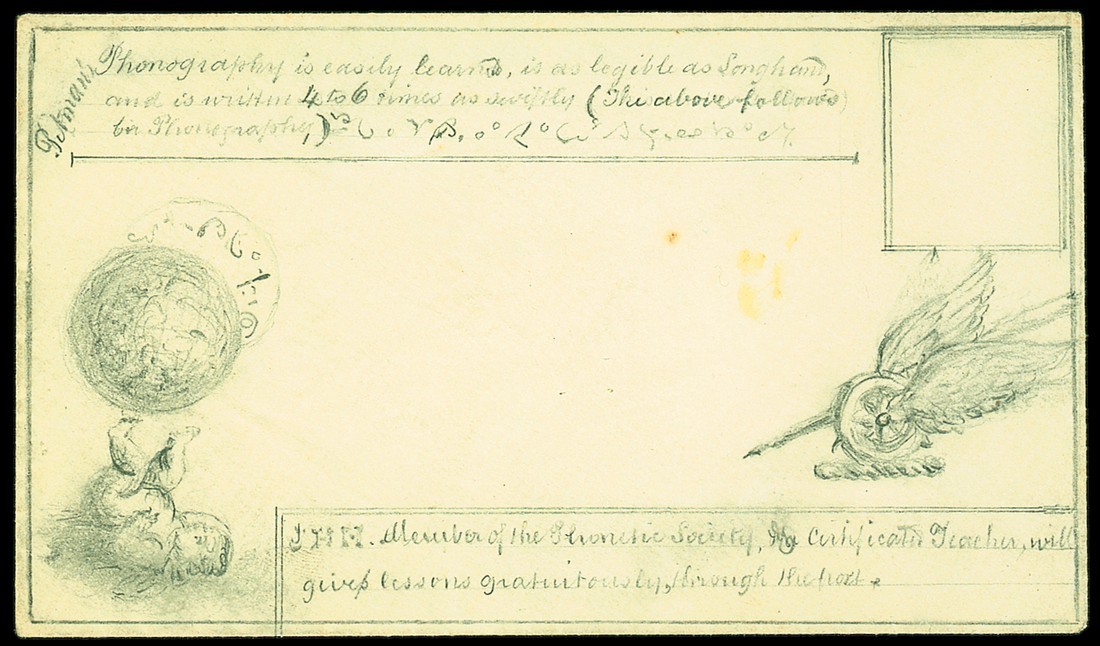 Pitman's
Phonography is easily learned, is as legible as Longhand,
and is written 4 to 6 times as swiftly (The above follows
in Phonography,)
Member of the Phonetic Society, & Certificated Teacher, will
gives lessons gratuitously, through the post.